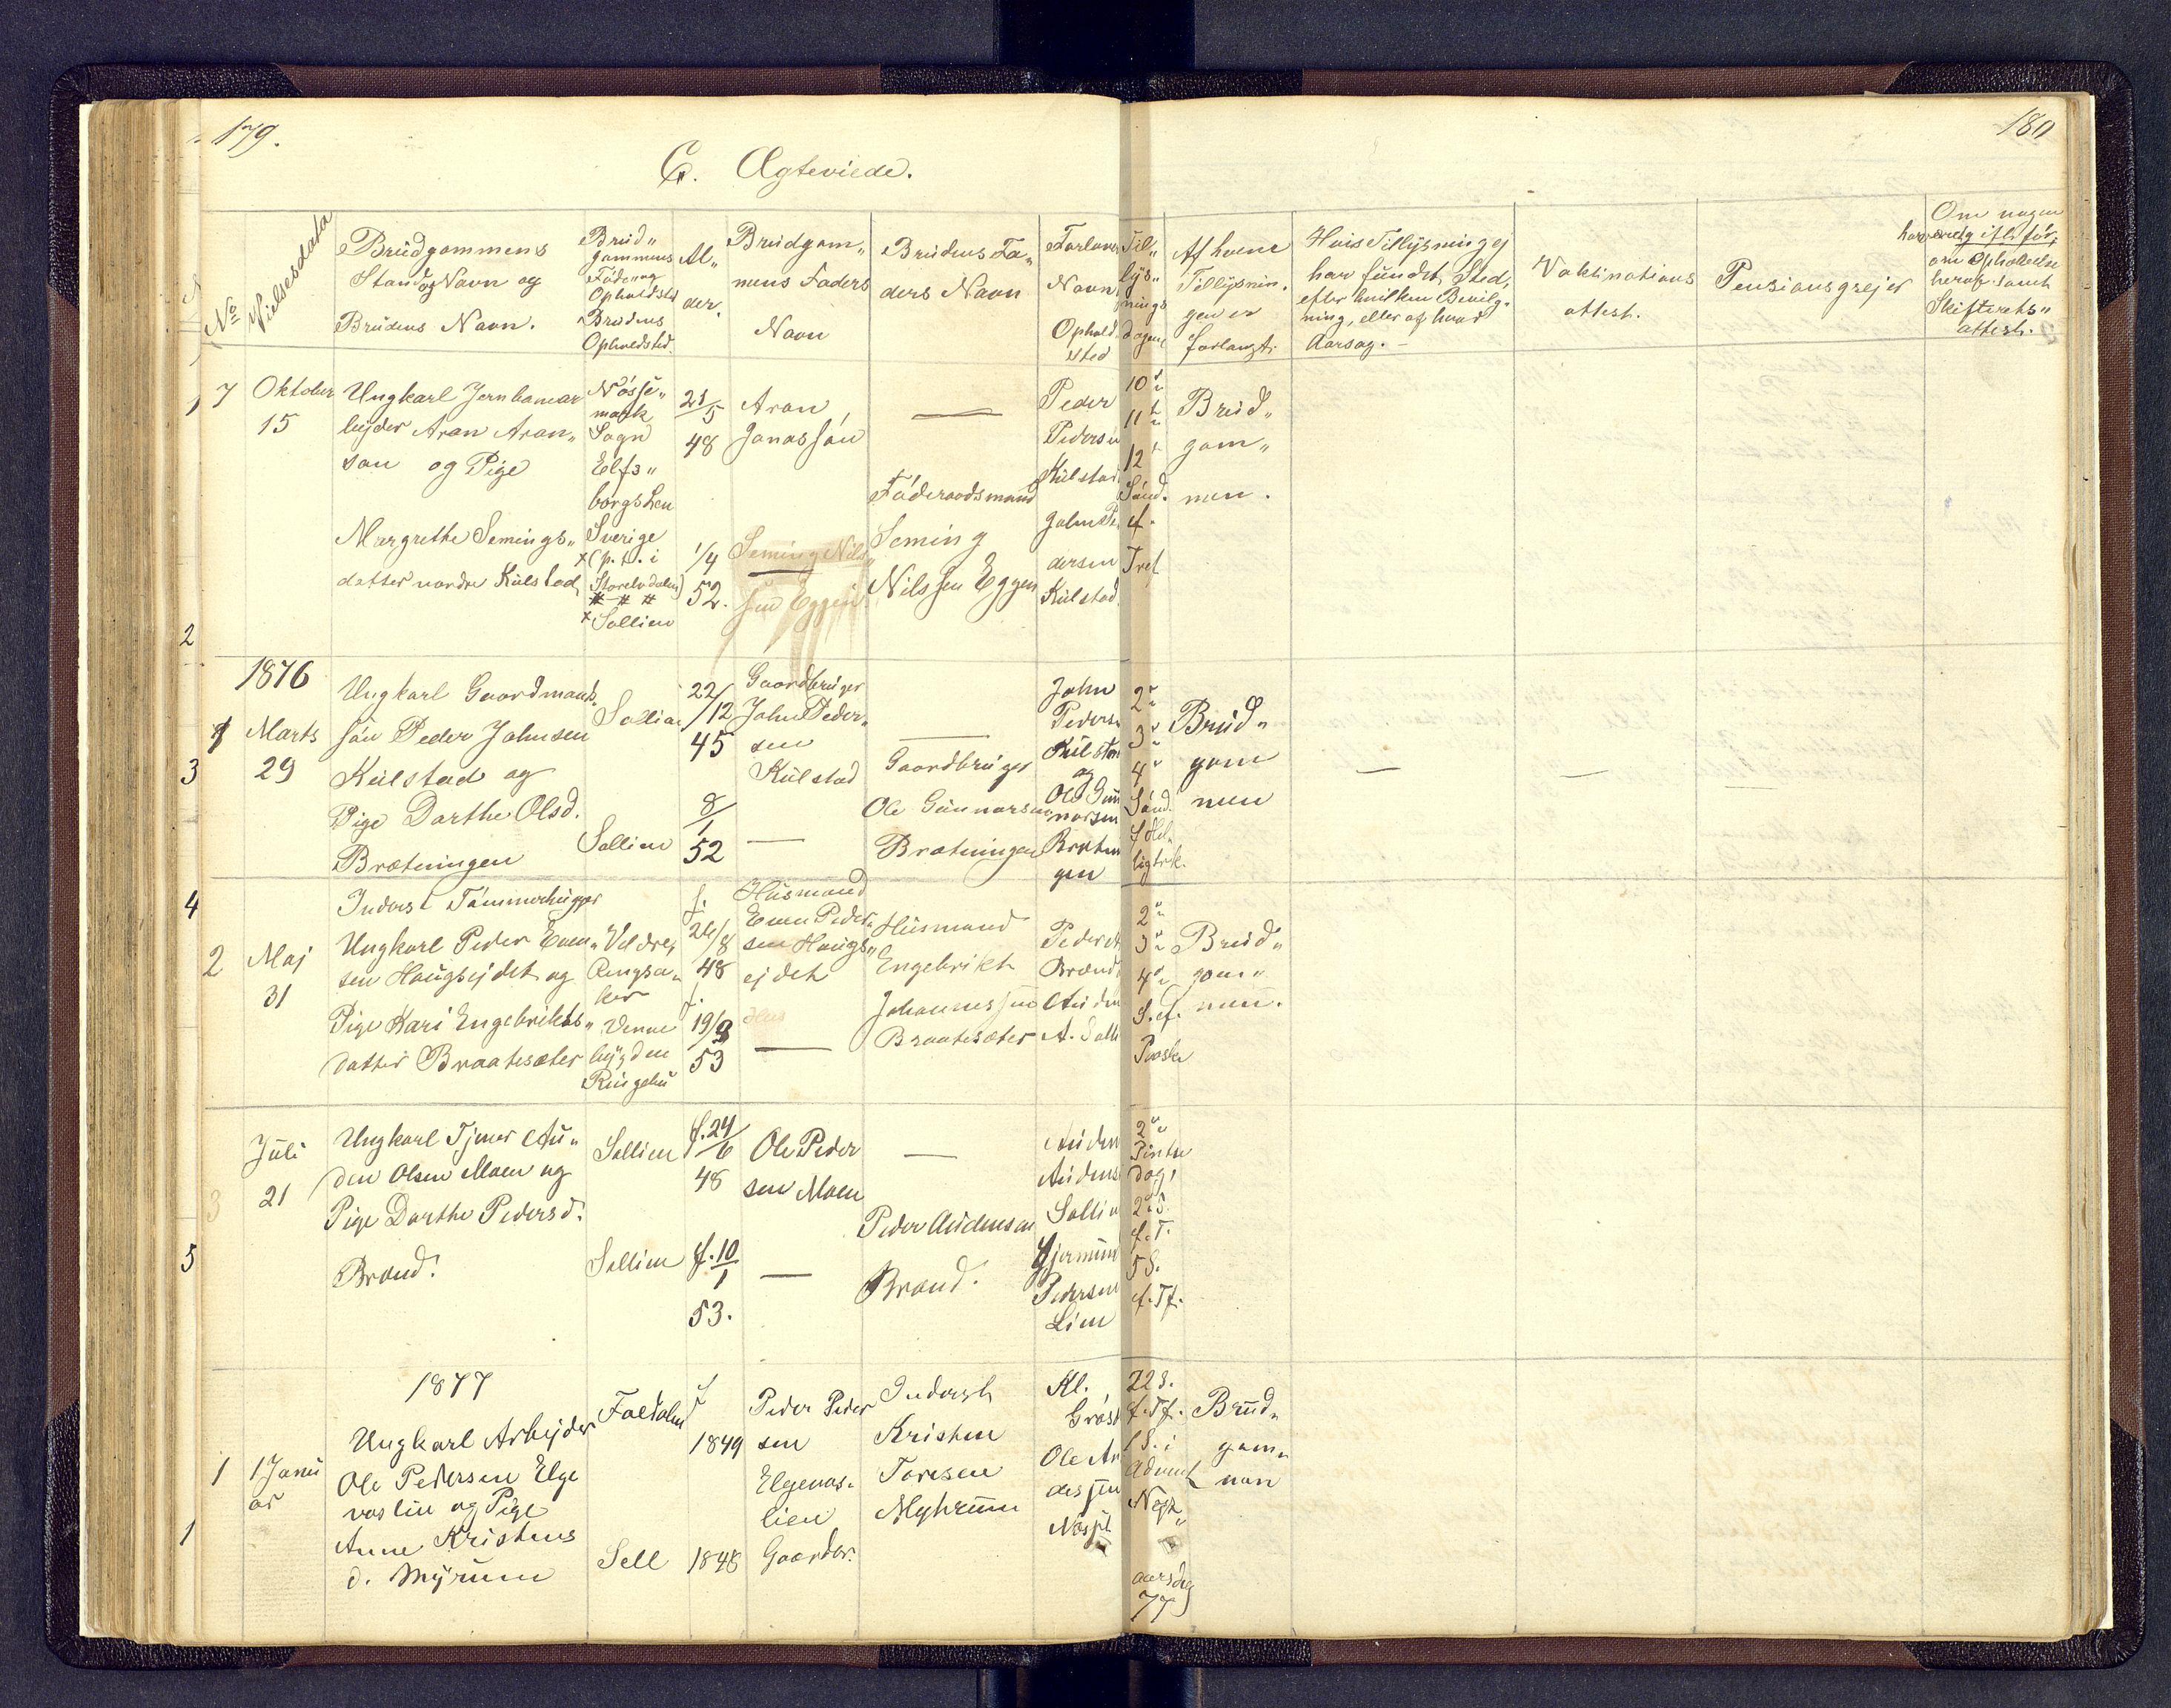 179.
180
C. Ægteviede.
No
Vielsesdata
Brudgommens
Stand og Navn og
Brudens Navn.
Brud"
gommens
Føde og
Opholdsted
Brudens
Opholdsted.
Al"
der.
Brudgom"
mens Faders
Navn
Brudens Fa"
ders Navn
Forlover
Navn
Ophold
sted
Til"
lys"
nings
dagene
Af hvem
Tillysnin"
gen er
forlangt.
Hvis Tillysning ej
har fundet Sted,
efter hvilken Bevilg"
ning, eller af hvad
Aarsag. –
Vaktinations
attest.
Pensionsgrejer
Om nogen
har været gift før,
om Opholdelse
heraf samt
Skifterets"
attest.
7
Oktober
15
Ungkarl Jernbanear
bejder Aron Aron"
son og Pige
Margrethe Semings"
datter nordre Kulstad
Nösse"
mark
Sogn
Elfs"
borgs Len
Sverige
x (p. t. i
Storelvdalen)
x Sollien
21/5
48
1/4
52.
Aron
Jonassøn
Seming Nils"
sen Eggen
Föderaadsmand
Seming
Nilssen Eggen
Peder
Pedersen
Kulstad
John Pe
dersen
Kulstad
10
11
12
Sönd.
ef.
Tref
Brud"
gom"
men.
2
1876
1
Marts
29
Ungkarl Gaardmands
søn Peder Johnsen
Kulstad og
Pige Dorthe Olsd.
Brætningen
Sollien
Sollien
22/12
45
8/1
52
Gaardbruger
John Peder"
sen
Kulstad
Gaardbruger
Ole Gunnarsen
Brætningen
John
Peders
Kulstad
og
Ole Gun
narsen
Brætnin
gen
2
3
4
Sönd.
f Hel
ligtrk.
Brud"
gom
men
3
4
2
Maj
31
Inderst Tömmerhugger
Ungkarl Peder Even"
sen Haugsejdet og
Pige Kari Engebrikts"
datter Braatesæter
Veldre,
Ringsa"
ker
Venne
bygden
Ringebu
f.
24/8
48
f.
19/8
53
Husmand
Even Peder"
sen Haugs"
ejdet
Husmand
Engebrikt
Johannessen
Braatesæter
Peder
Brænd
Auden
A. Solli
2
3
4
S. ef.
Paaske
Brud"
gom"
men.
3
Juli
21
Ungkarl Tjener Au"
den Olsen Moen og
Pige Dorthe Pedersd.
Brænd.
Sollien
Sollien
f. 24/6
48
f. 10/1
53.
Ole Peder
sen Moen
Peder Audensen
Brænd.
Auden
Audens
Sollien
Gjermund
Pedersen
Lien
2
Pintse
dag,
2 S.
f. T.
5 S.
f. Tf.
5
1877
1
1 Janu
ar
Ungkarl Arbejder
Ole Pedersen Elge
vaslien og Pige
Anne Kristens
d. Myrum
Foldalen
Sell
f
1849
1848
Peder Peder
sen
Elgevas"
lien
Gaardbr.
Inderst
Kristen
Toresen
Myhrum
Kl.
Ole An
dessen
22 S.
f. Tf.
1 S. i
Advent
Nyt"
aarsdag
77
Brud"
gom"
men
1